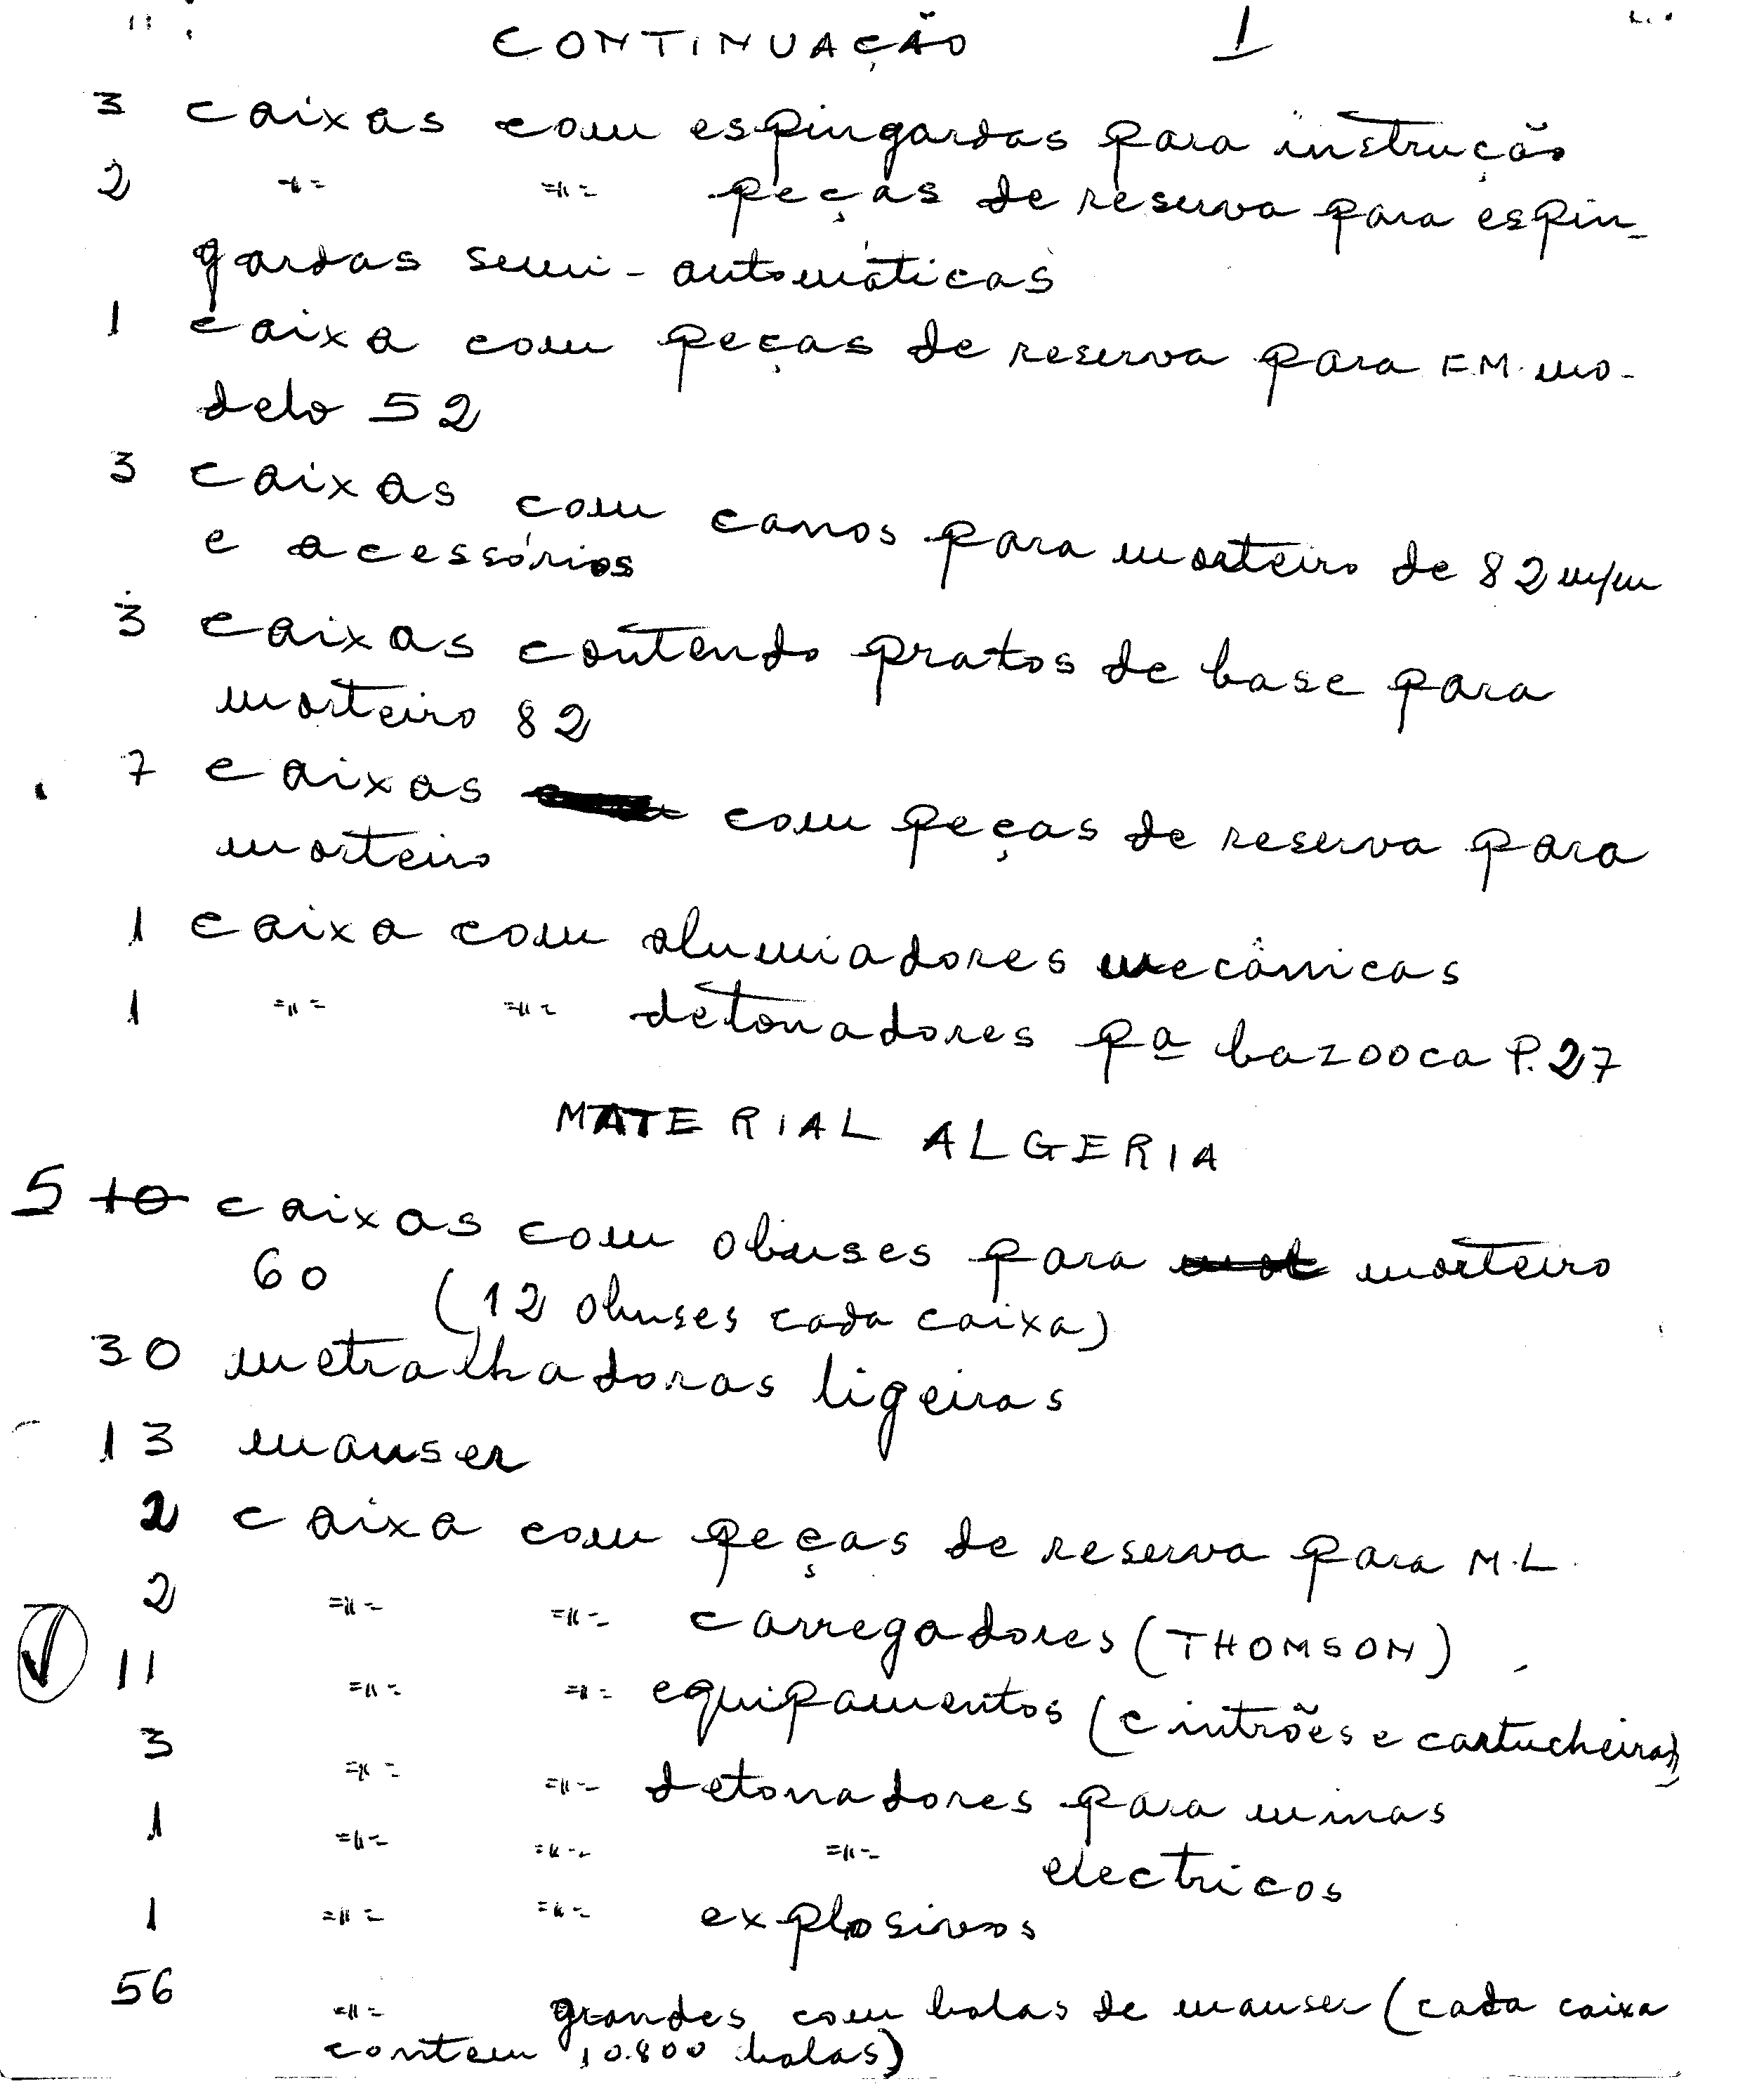 CONTINUAÇÃO 1
3 caixas com espingardas para instrução
2 =〃= =〃= peças de reserva para espin-
gardas semi-automáticas
1 caixa com peças de reserva para F.M. mo-
delo 52
3 caixas com canos para morteiro de 82 m/m
e acessórios
3 caixas contendo pratos de base para
morteiro 82
7 caixas com peças de reserva para
morteiro
1 caixa com alumiadores mecânicas
1 =〃= =〃= detonadores pª bazooca P.27
MATERIAL ALGERIA
5 10 caixas com obuses para morteiro
60 (12 obuses cada caixa)
30 metralhadoras ligeiras
13 mauser
2 caixa com peças de reserva para M.L.
2 =〃= =〃= carregadores (THOMSON)
11 =〃= =〃= equipamentos (cintrões e cartucheiras)
3 =〃= =〃= detonadores para minas
1 =〃= =〃= =〃= electricos
1 =〃= =〃= explosivos
56 =〃= grandes com balas de mauser (cada caixa
contem 10.800 balas)